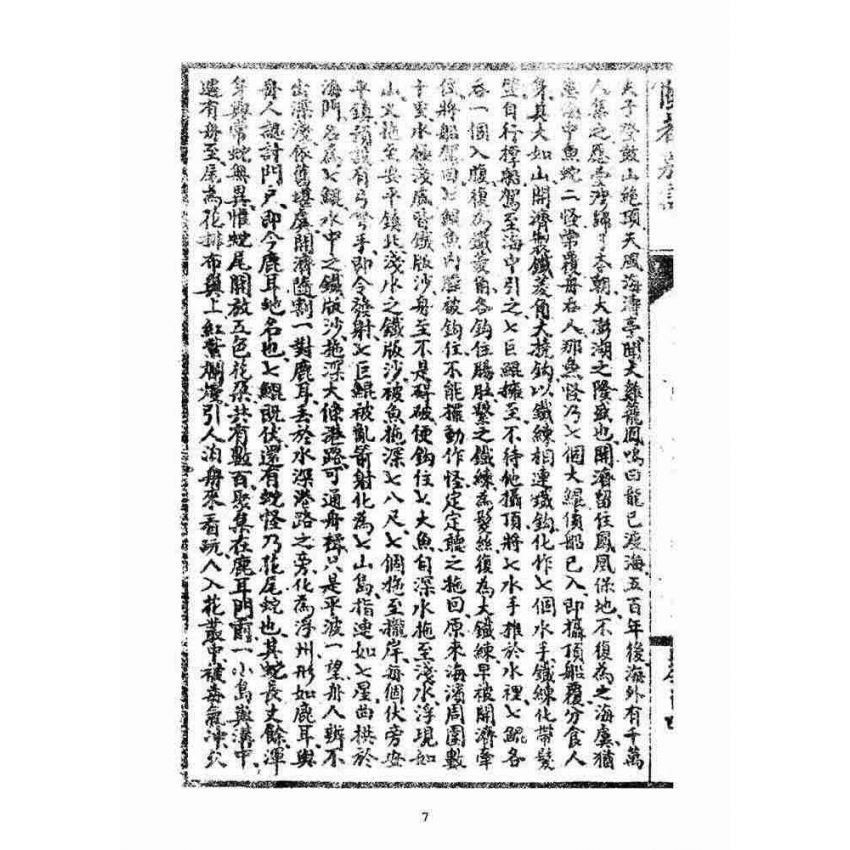 夫子登鼓山絕頂天風海濤亭聞大雞籠鳳鳴曰龍已渡海五百年後海外有千萬
人集之應臺灣歸中本朝大澎湖之隆盛也開濟留住鳳凰保地不復為之海虞猶
患海中魚蛇二怪常覆舟吞人那魚怪乃七個大鯤偵船已入即攝頂船覆分食人
身其大如山開濟製鐵菱角大撓鈎以鐵練相連鐵鈎化作七個水手鐵練化帶髮
竪自行標船駕至海中引之七巨鯤擁至不待他攝頂將七水手推於水裡七鯤各
吞一個入腹復為鐵菱角各鈎住腸肚繫之鐵練為髮絲復為大鐵練早被開濟牽
住將船駕回七鯤魚內臟被鈎住不能擺動作怪定定聽之拖回原來海濱周圍數
十里水極淺底皆鐵版沙舟至不是碍破便鈎住七大魚自深水拖至淺水浮現如
山又拖至安平鎮北淺水之鐵版沙被魚拖深七八尺七個拖至攏岸每個伏旁安
平鎮預設有弓弩手即令發射七巨鯤被亂箭射化為七山島指連如七星曲拱於
海門名為七鯤水中之鐵版沙拖深大條港路可通舟楫只是平波一望舟人辨不
出深淺依舊堪虞開濟隨割一對鹿耳丟於水深港路之旁化為浮州形如鹿耳與
舟人認討門戶即今鹿耳地名也七鯤既伏還有蛇怪乃花尾蛇也其蛇長丈餘渾
身與常蛇無異惟蛇尾開放五色花朵共有數百聚集在鹿耳門前一小島與溝中
還有舟至尾為花排布與上紅紫斕熳引人泊舟來看玩人入花叢中被毒氣沖欠
7